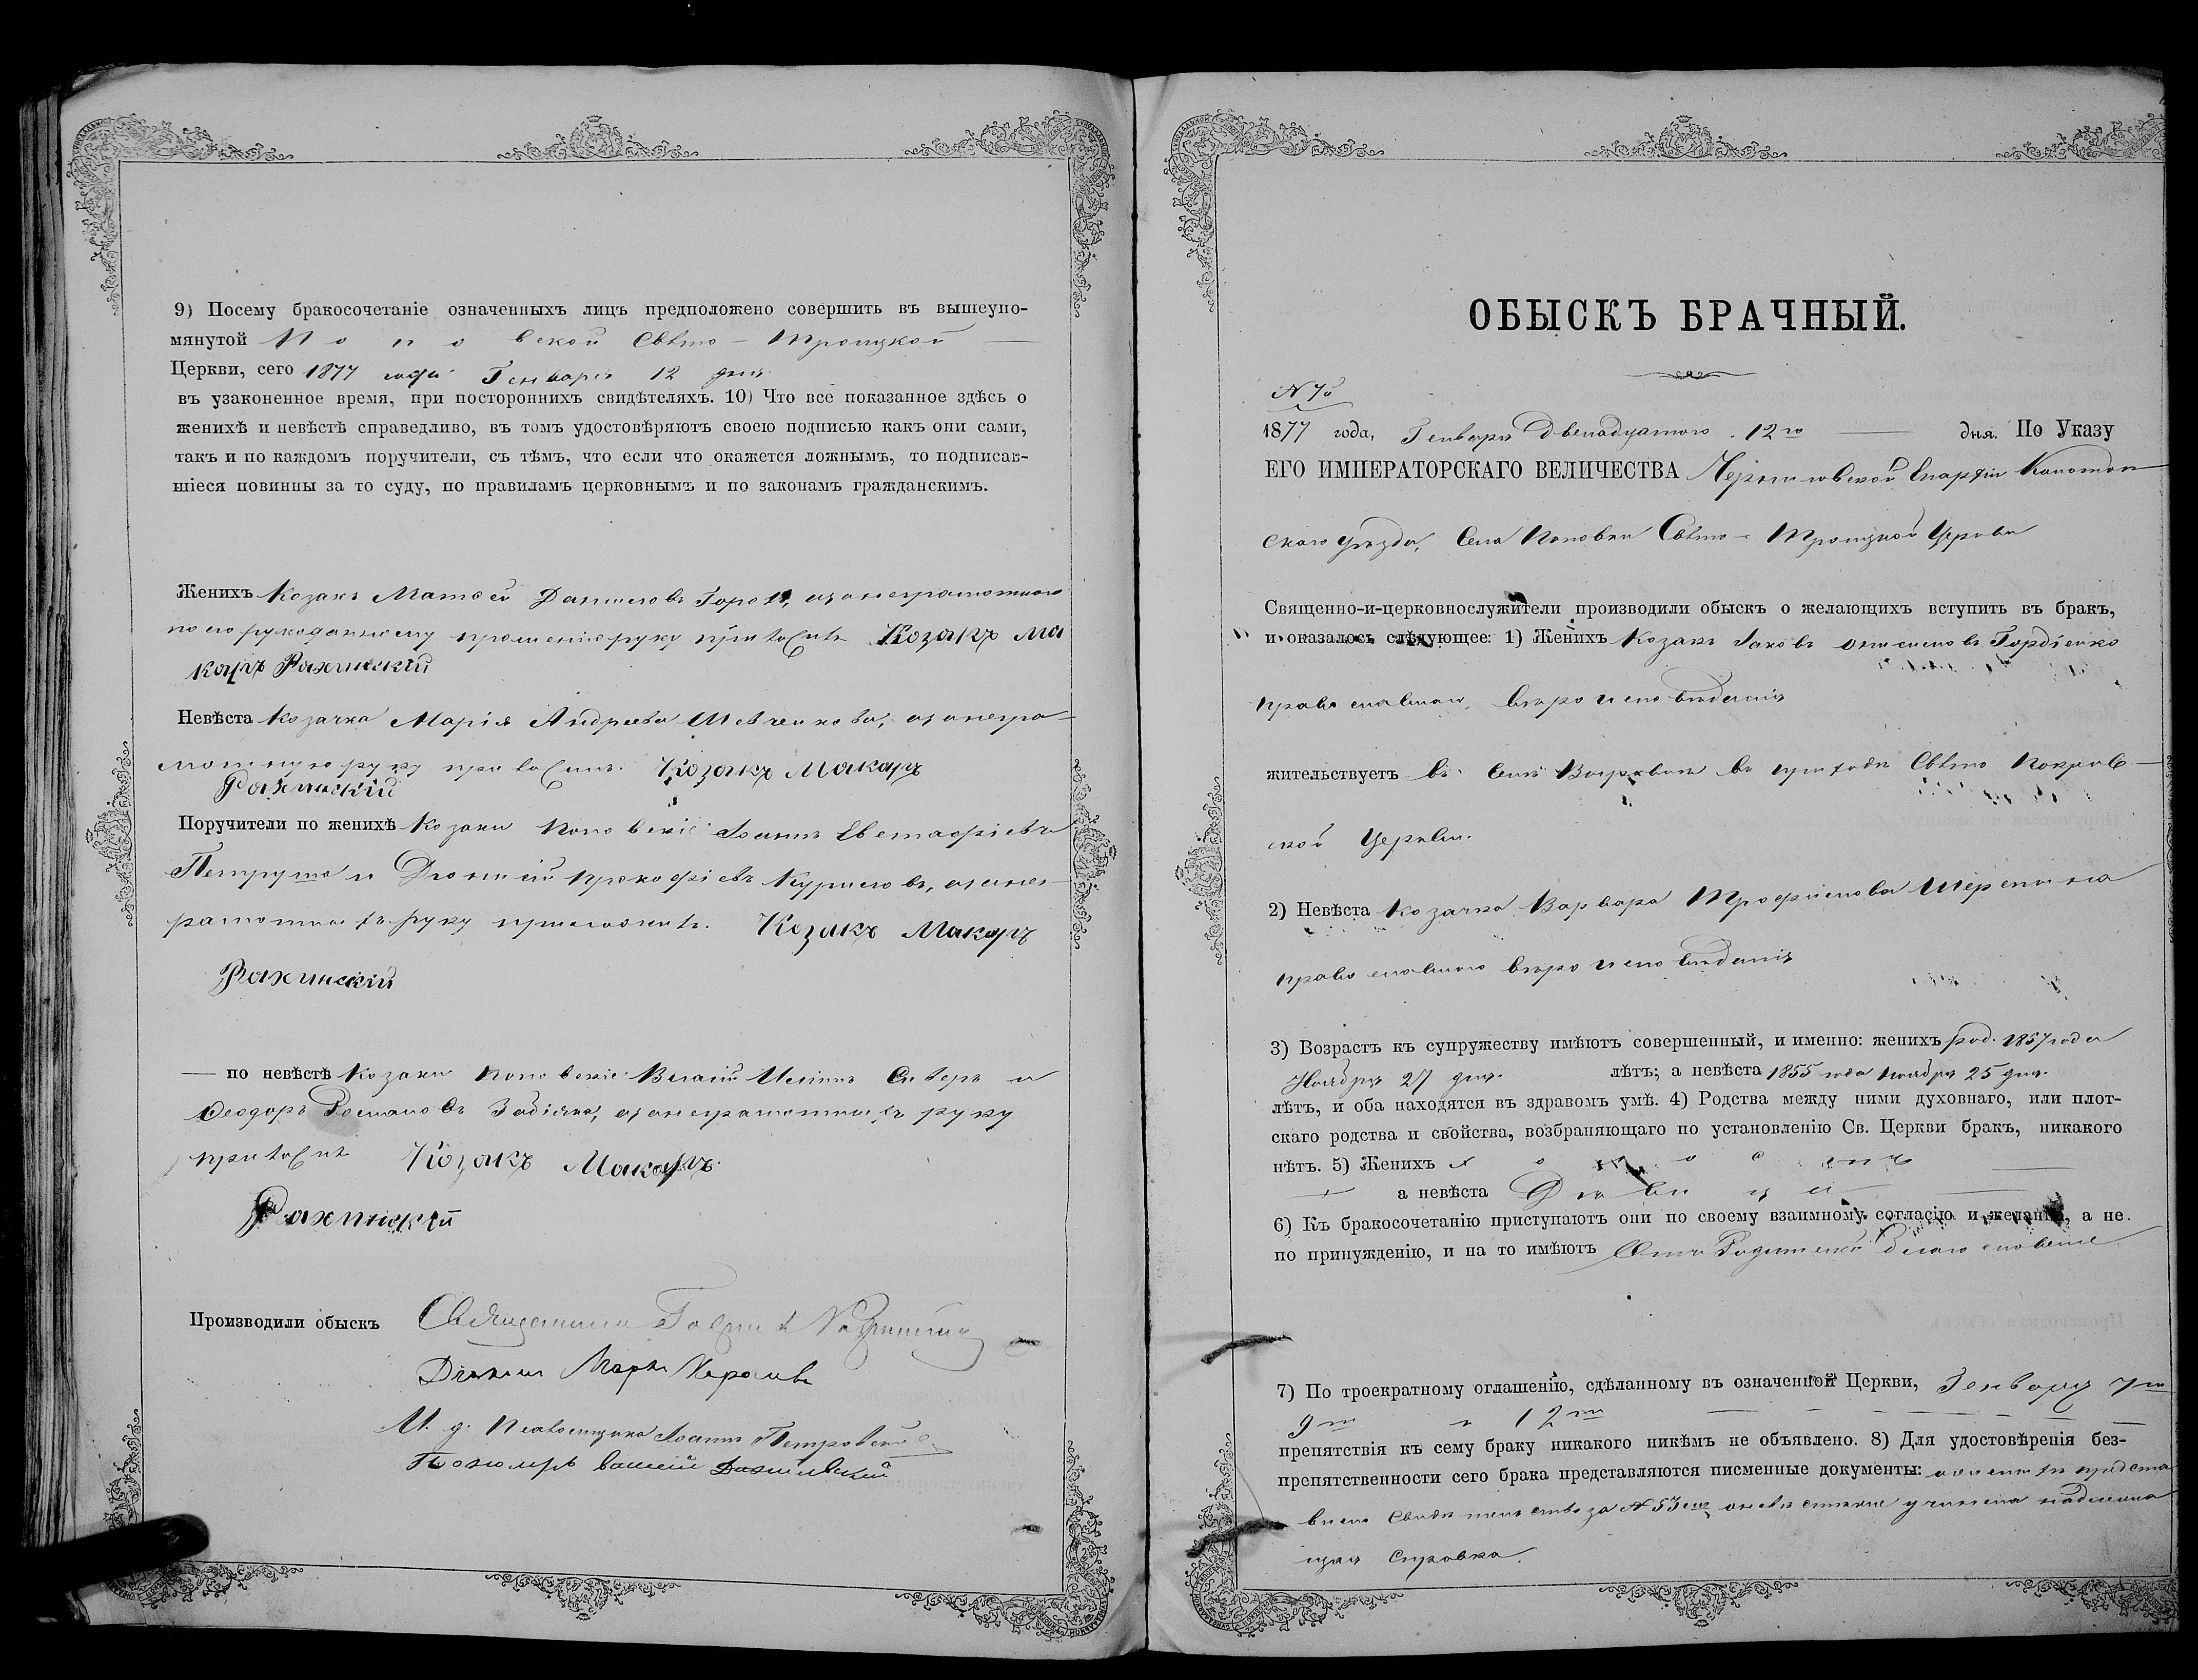 9) Посему бракосочетаніе означенныхъ лицъ предположено совершить въ вышеупо-
мянутой Поповской Свѣто - Троицкой
Церкви, сего 1877 года Генваря 12 дня
въ узаконенное время, при постороннихъ свидѣтеляхъ. 10) Что все показанное здѣсь о
женихѣ и невѣстѣ справедливо, въ томъ удостовѣряютъ своею подписью какъ они сами,
такъ и по каждомъ поручители, съ тѣмъ, что если что окажется ложнымъ, то подписав-
шіеся повинны за то суду, по правиламъ церковнымъ и по законамъ гражданскимъ.
Женихъ Козакъ Матѳей Даниловъ, а за неграмотного
по его рукоданному прошенію руку приложилъ Козакъ Ма
каръ Рахинскій
Невѣста Козачка Марія Андреева Шевченкова, а за негра-
мотную руку приложилъ. Козакъ Макаръ
Рахинскій
Поручители по женихѣ Козаки Поповскіе Іоаннъ Евстафіевъ
Петруша и Діонисій Прокофіевъ Куриловъ, а за нег-
рамотныхъ руку приложилъ. Козакъ Макаръ
Рахинскій
— по невѣстѣ Козаки Поповскіе Власій и
Ѳеодоръ Романовъ, а за неграмотныхъ руку
приложилъ Козакъ Макаръ
Рахинскій
Производили обыскъ Священникъ
Діаконъ Маркъ
И. д. Псаломщика Іоаннъ Петровскій
Пономарь
ОБЫСКЪ БРАЧНЫЙ.
1877 года, Генваря Двенадцатого 12го — дня. По Указу
ЕГО ИМПЕРАТОРСКАГО ВЕЛИЧЕСТВА Черниговской Епархіи Конотоп
ского уѣзда, Села Поповки Свѣто - Троицкой Церкви
Священно-и-церковнослужители производили обыскъ о желающихъ вступить въ бракъ,
и оказалось слѣдующее: 1) Женихъ Козакъ Іаковъ Гордіенко
православного вѣроисповѣданія
жительствуетъ въ Селѣ въ приходѣ Свѣто Покров-
ской Церкви.
2) Невѣста Козачка Варвара Трофимова
православного вѣроисповѣданія
3) Возрастъ къ супружеству имѣютъ совершенный, и именно: женихъ род. 1857 года
Ноября 27 дня. лѣтъ; а невѣста 1855 года Ноября 25 дня.
лѣтъ, и оба находятся въ здравомъ умѣ. 4) Родства между ними духовнаго, или плот-
скаго родства и свойства, возбраняющаго по установленію Св. Церкви бракъ, никакого
нѣтъ. 5) Женихъ холостъ
а невѣста Дѣвица
6) Къ бракосочетанію приступаютъ они по своему взаимному согласію и желанію, а не
по принужденію, и на то имѣютъ Отъ Родителей благословеніе
7) По троекратному оглашенію, сдѣланному въ означенной Церкви, Генваря 7го
9го и 12го
препятствія къ сему браку никакого никѣмъ не объявлено. 8) Для удостовѣренія без-
препятственности сего брака представляются писменные документы: о женихѣ предста
влено Свидѣтельство за № 53, о невѣстѣ учинена надлежа
щая Справка.